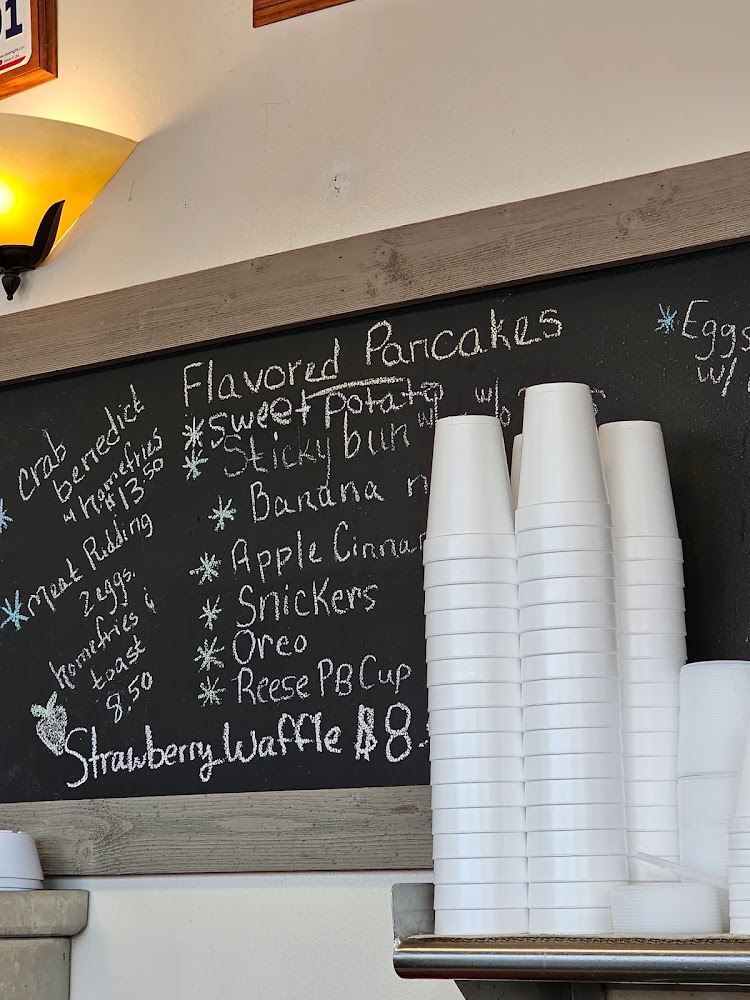 crab
benedict
w/ homefries
$13.50
meat Pudding
2 eggs,
homefries &
toast
8.50
Flavored Pancakes
sweet potato w/
Sticky bun w/
Banana
Apple Cinna
Snickers
Oreo
Reese PB Cup
Strawberry Waffle $8.
Eggs
w/